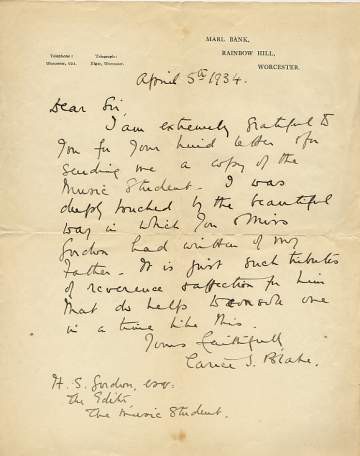 MARL BANK,
RAINBOW HILL,
WORCESTER.
Telephone: Telegraph:
Worcester, Elgar, Worcester.
April 5th 1934.
Dear Sir
I am extremely grateful to
you for your kind letter & for
sending me a copy of the
Music Student. I was
deeply touched by the beautiful
way in which you & Miss
Gordon had written of my
Father. It is just such tributes
of reverence & affection for him
that do help to console one
in a time like this.
Yours faithfully
Carice E. Blake.
H. S. Gordon, esq:
The Editor
The Music Student.